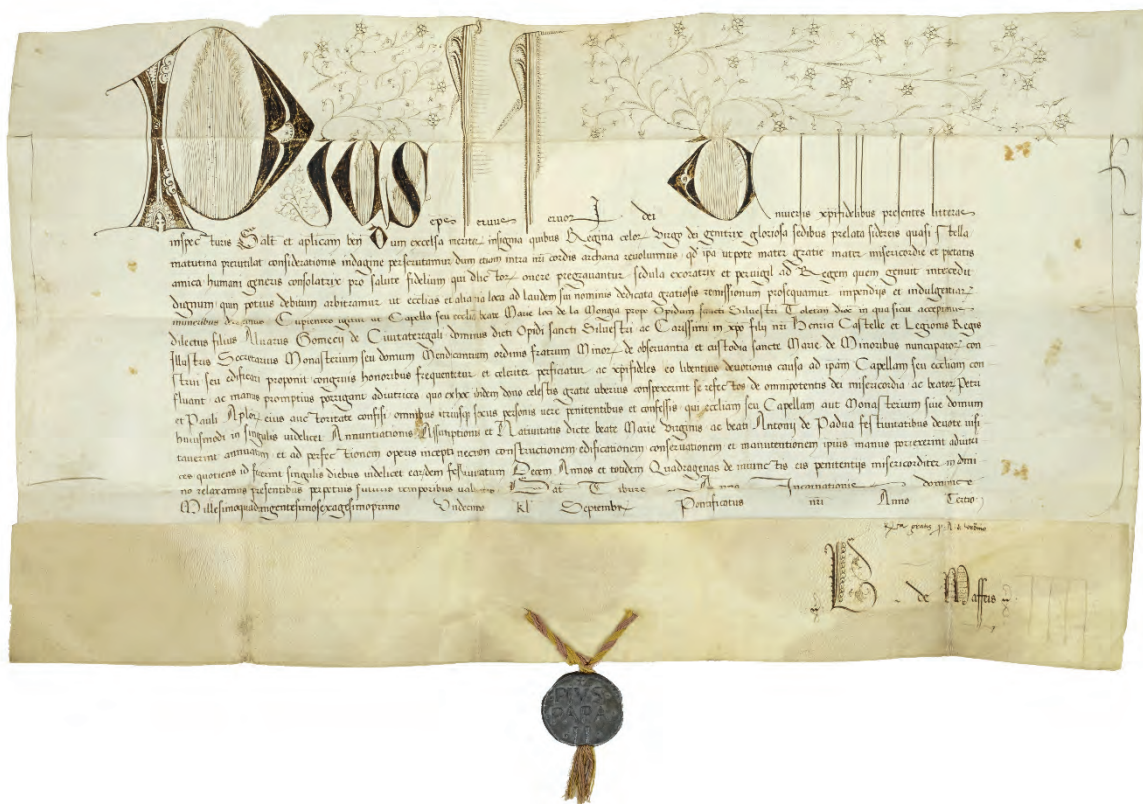 Pius epus servus servor dei Universis xpifidelibus presentes litteras
inspecturis Salt et aplicam ben Dum excelsa meritor insignia quibus Regina celor virgo dei genitrix gloriosa sedibus prelata sidereis quasi stella
matutina prerutilat considerationis indagine perscrutamur dum etiam intra nri cordis archana revolvimus qd ipa utpote mater gratie mater misericordie et pietatis
amica humani generis consolatrix pro salute fidelium qui delictor onere pregravantur sedula exoratrix et pervigil ad Regem quem genuit intercedit
dignum quin potius debitum arbitramur ut ecclias et alia pia loca ad laudem sui nominis dedicata gratiosis remissionum prosequamur impendijs et indulgentiar
muneribus decoremus Cupientes igitur ut Capella seu ecclia beate Marie loci de la Mongia prope Opidum sancti Silvestri Toletan dioc in qua sicut accepimus
dilectus filius Alvarus Gomecij de Civitateregali dominus dicti Opidi sancti Silvestri ac Carissimi in xpo filij nri Henrici Castelle et Legionis Regis
Illustris Secretarius Monasterium seu domum Mendicantium ordinis fratrum Minor de observantia et custodia sancte Marie de Minoribus nuncupator con
strui seu edificari proponit congruis honoribus frequentetur et celeriter perficiatur ac xpifideles eo libentius devotionis causa ad ipam Capellam seu eccliam con
fluant ac manus promptius porrigant adiutrices quo exhoc ibidem dono celestis gratie uberius conspexerint se refectos de omnipotentis dei misericordia ac beator Petri
et Pauli Aplor eius auctoritate confisi omnibus utriusqz sexus personis vere penitentibus et confessis qui eccliam seu Capellam aut Monasterium sive domum
huiusmodi in singulis videlicet Annuntiationis Assumptionis et Nativitatis dicte beate Marie Virginis ac beati Antonij de Padua festivitatibus devote visi
taverint annuatim et ad perfectionem operis incepti necnon constructionem edificationem conservationem et manutentionem ipius manus porrexerint adiutri
ces quotiens id fecerint singulis diebus videlicet earundem festivitatum Decem Annos et totidem Quadragenas de iniunctis eis penitentijs misericorditer in dni
no relaxamus presentibus perpetuis futuris temporibus valituris Dat Tibure Anno Incarnationis dominice
Millesimoquadringentesimosexagesimoprimo Undecimo kl Septembr Pontificatus nri Anno Tertio
B de Maffeis
PIVS
PAPA
II